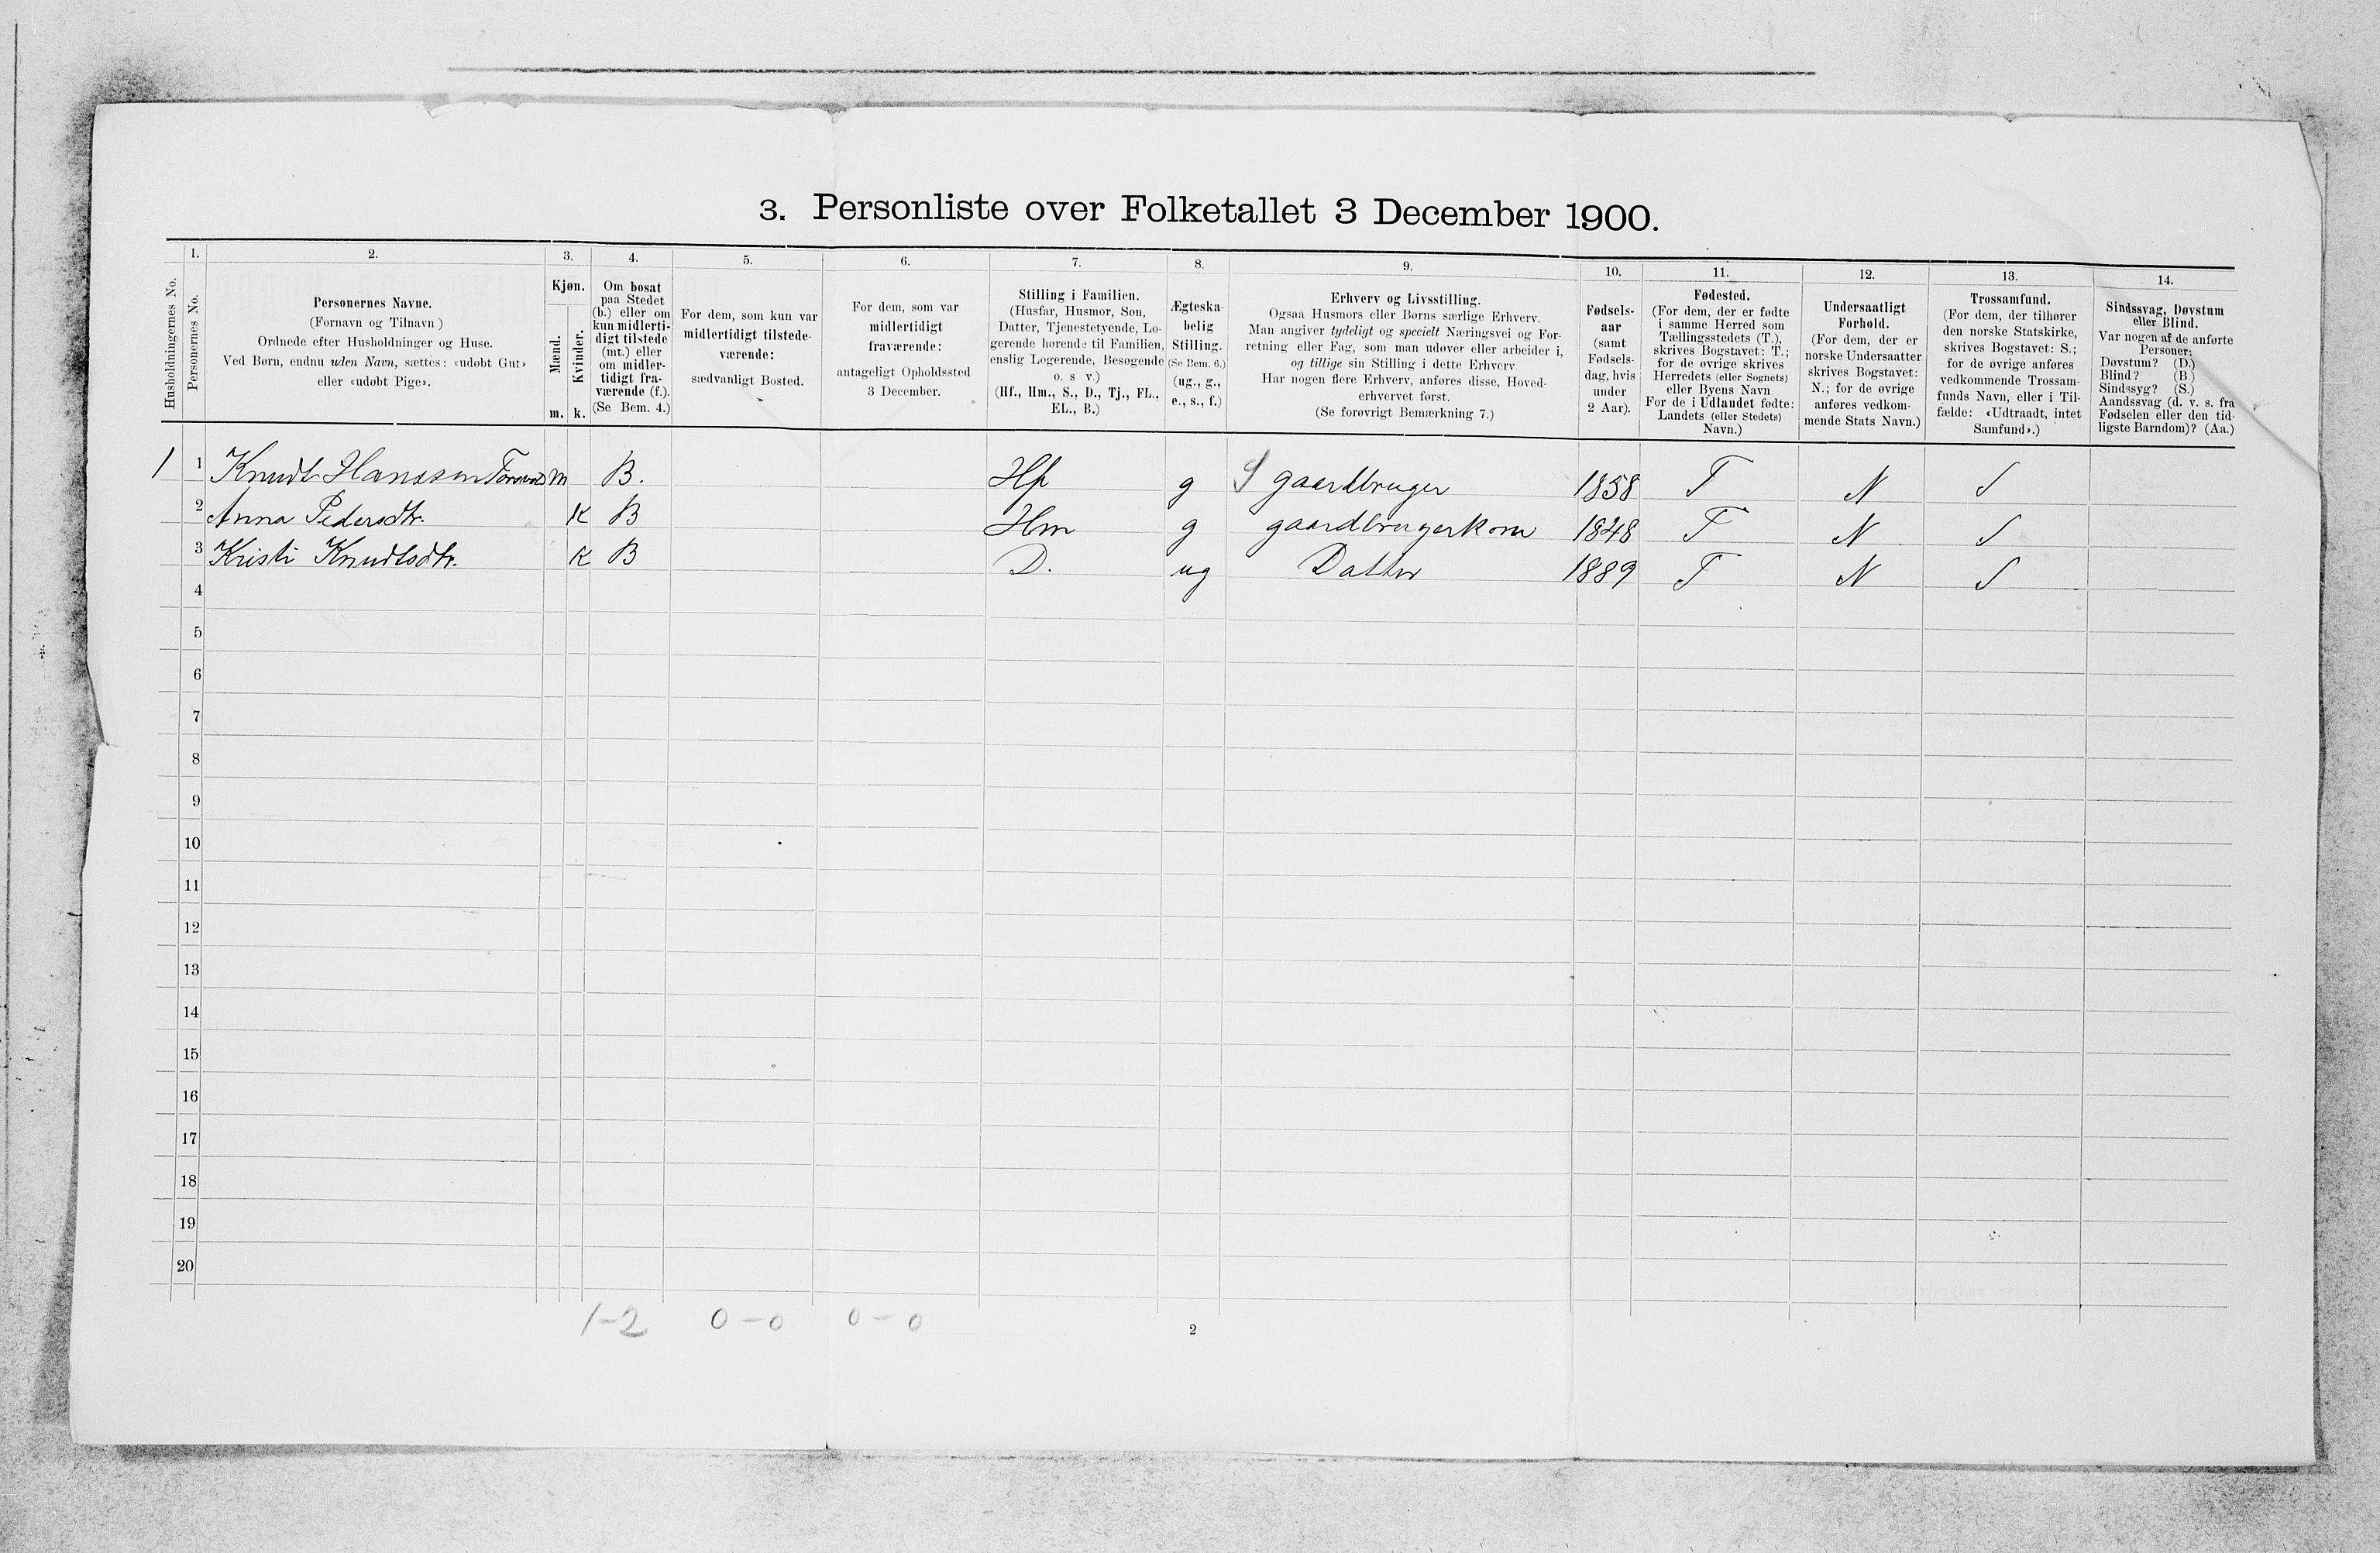 3. Personliste over Folketallet 3 December 1900.
1. 2. 3. 4. 5. 6. 7. 8. 9. 10. 11. 12. 13. 14.
Husholdningernes No.
Personernes No.
Personernes Navne.
(Fornavn og Tilnavn)
Ordnede efter Husholdninger og Huse.
Ved Børn, endnu uden Navn, sættes: «udøbt Gut»
eller «udøbt Pige».
Kjøn.
Mænd.
Kvinder.
m. k.
Om bosat
paa Stedet
(b.) eller om
kun midlerti-
digt tilstede
(mt.) eller
om midler-
tidigt fra-
værende (f.).
(Se Bem. 4.)
For dem, som kun var
midlertidigt tilstede-
værende:
sædvanligt Bosted.
For dem, som var
midlertidigt
fraværende:
antageligt Opholdssted
3 December.
Stilling i Familien.
(Husfar, Husmor, Søn,
Datter, Tjenestetyende, Lo-
gerende hørende til Familien,
enslig Logerende, Besøgende
o. s v.)
(Hf., Hm., S., D., Tj., FL.,
EL., B.)
Ægteska-
belig
Stilling.
(Se Bem. 6.)
(ug., g.,
e., s., f.)
Erhverv og Livsstilling.
Ogsaa Husmors eller Børns særlige Erhverv.
Man angiver tydeligt og specielt Næringsvei og For-
retning eller Fag, som man udøver eller arbeider i,
og tillige sin Stilling i dette Erhverv.
Har nogen flere Erhverv, anføres disse, Hoved-
erhvervet først.
(Se forøvrigt Bemærkning 7.)
Fødsels-
aar
(samt
Fødsels-
dag, hvis
under
2 Aar).
Fødested.
(For dem, der er fødte
i samme Herred som
Tællingsstedets (T.),
skrives Bogstavet: T.;
for de øvrige skrives
Herredets (eller Sognets)
eller Byens Navn.
For de i Udlandet fødte:
Landets (eller Stedets)
Navn.)
Undersaatligt
Forhold.
(For dem, der er
norske Undersaatter
skrives Bogstavet:
N.; for de øvrige
anføres vedkom-
mende Stats Navn.)
Trossamfund.
(For dem, der tilhører
den norske Statskirke,
skrives Bogstavet: S.;
for de øvrige anføres
vedkommende Trossam-
funds Navn, eller i Til-
fælde: «Udtraadt, intet
Samfund».)
Sindssvag, Døvstum
eller Blind.
Var nogen af de anførte
Personer:
Døvstum? (D.)
Blind? (B.)
Sindssyg? (S.)
Aandssvag (d. v. s. fra
Fødselen eller den tid-
ligste Barndom)? (Aa.)
1 1 Knudt Hanssen m B. Hf g S gaardbruger 1858 T N S
2 Anna Pedersdtr. K B Hm g gaardbrugerkone 1848 T N S
3 Kristi Knudtsdtr. K B D. ug Datter 1889 T N S
4
5
6
7
8
9
10
11
12
13
14
15
16
17
18
19
20
1-2 0-0 0-0
2